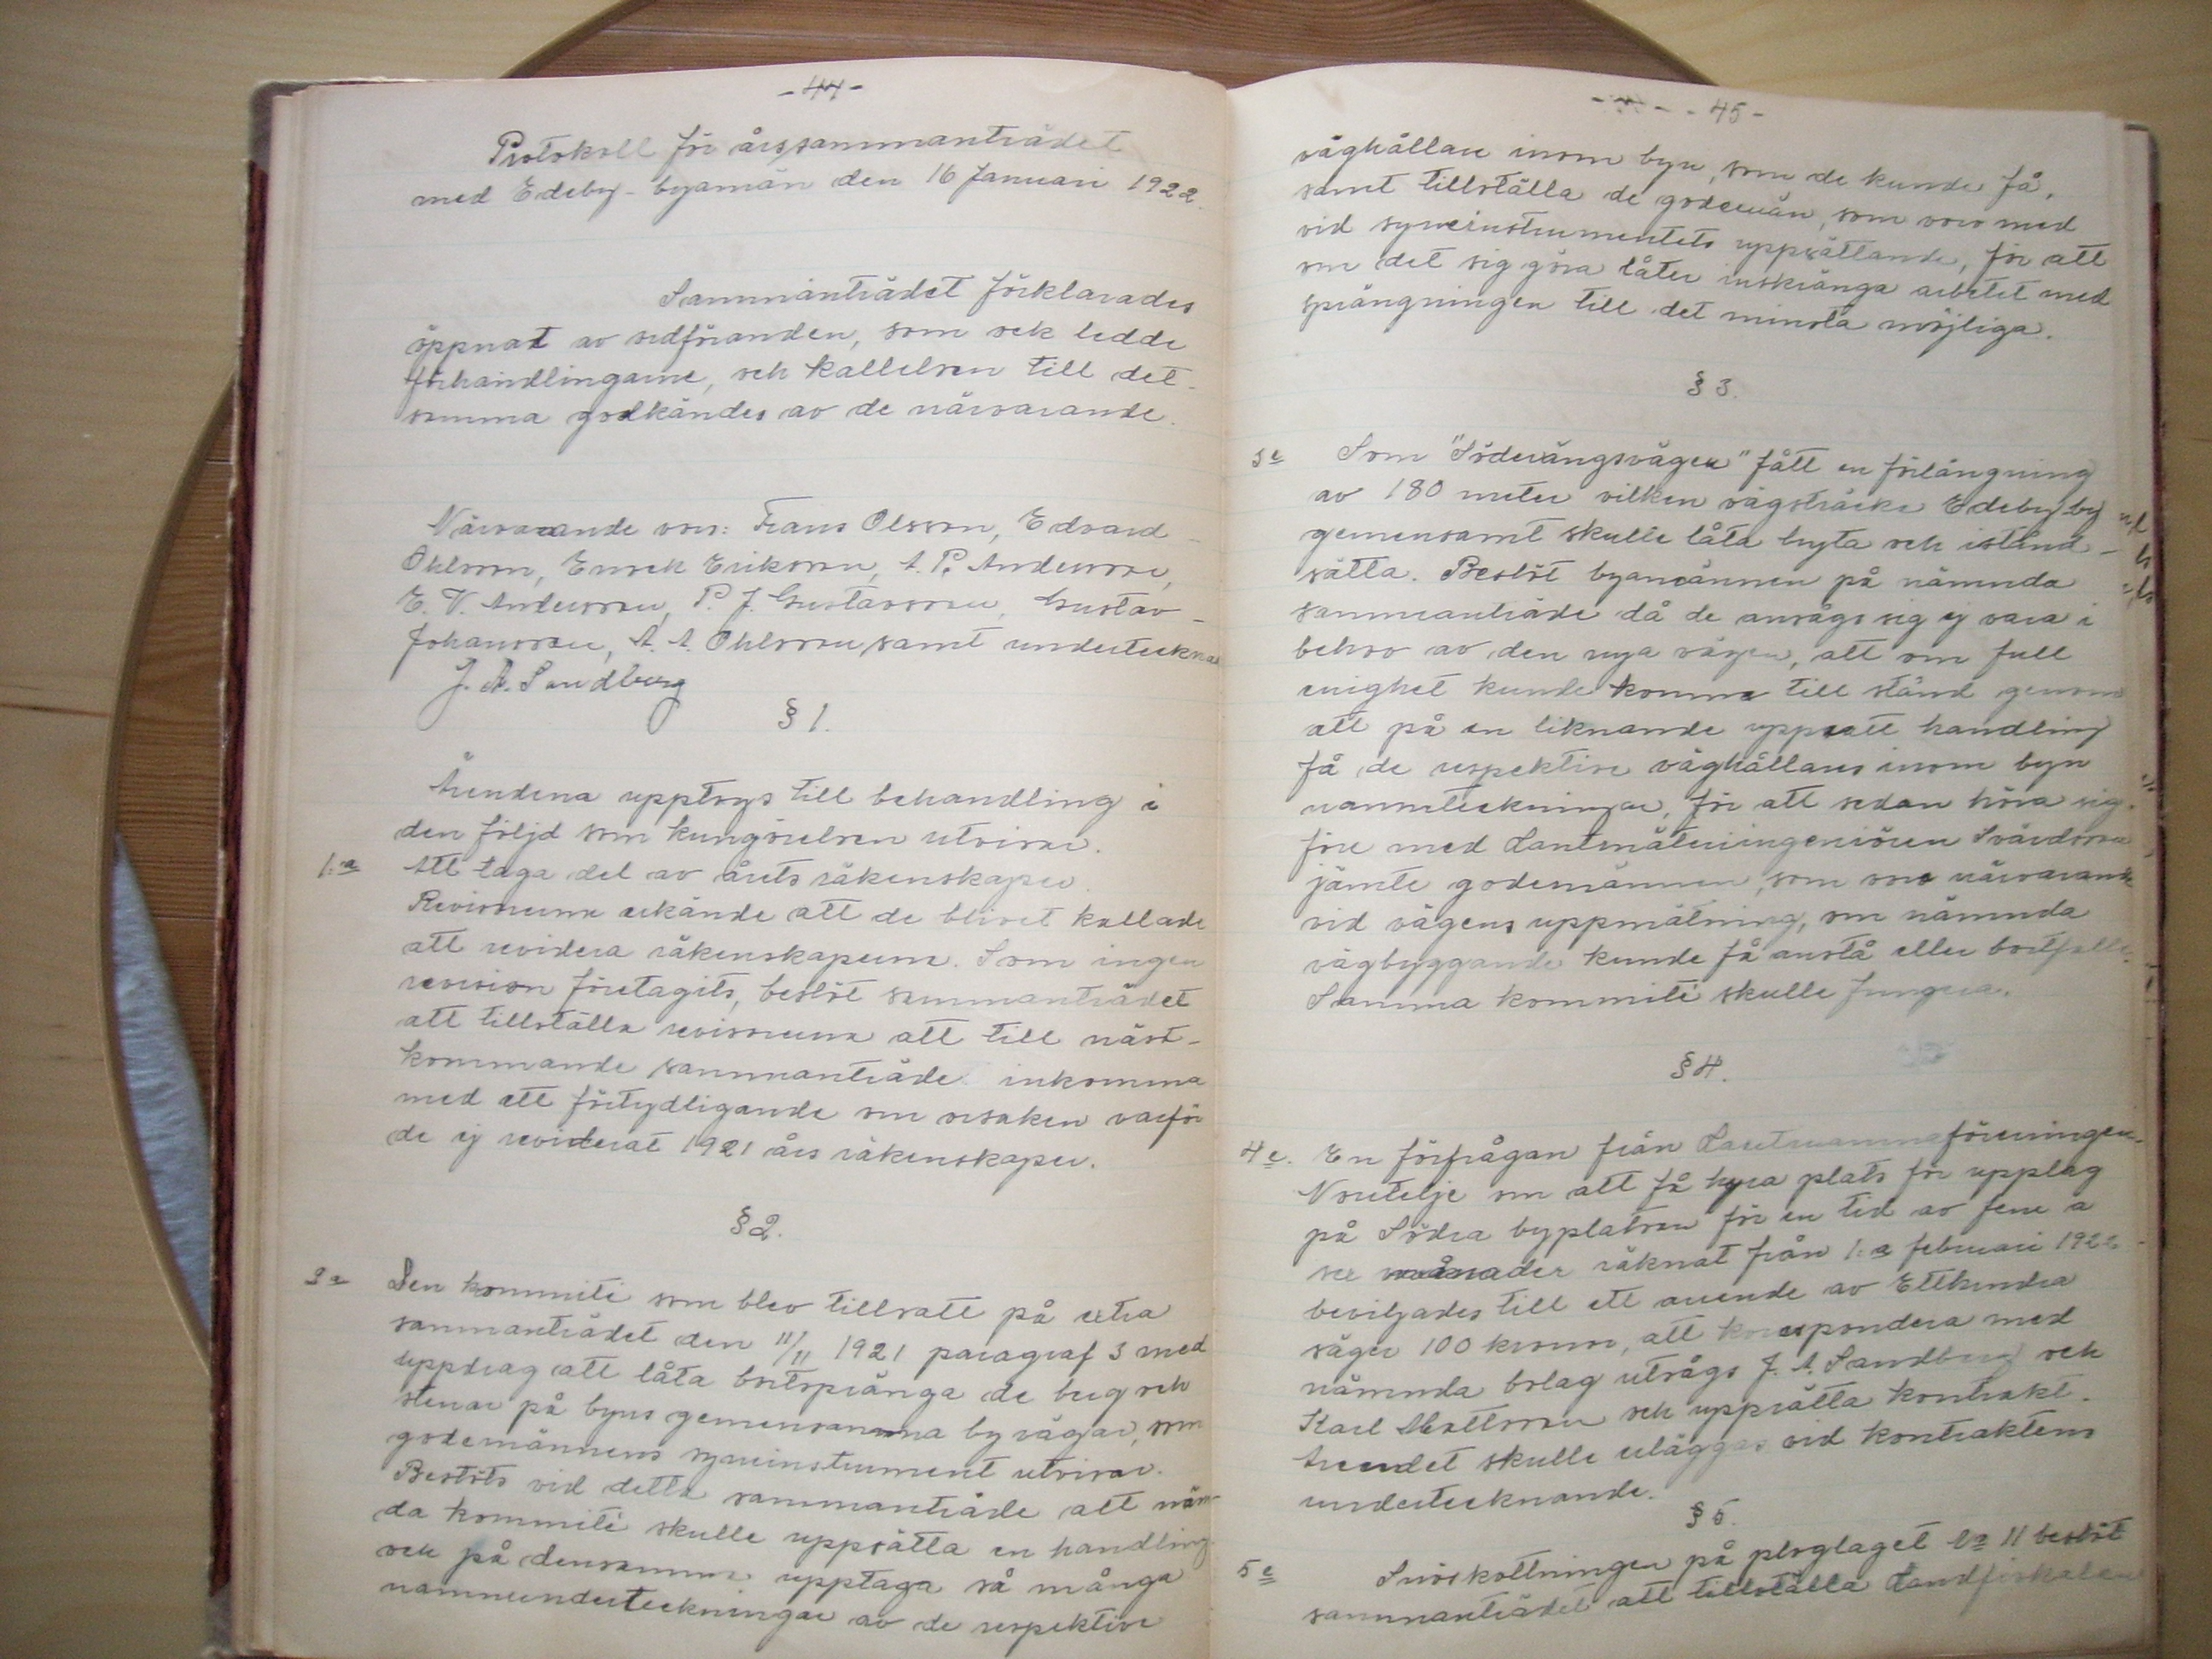 -44-
Protokoll för årssammanträdet
med Edeby-byamän den 16 Januari 1922.
Sammanträdet förklarades
öppnat av ordföranden, som ock ledde
förhandlingarne, och kallelsen till det-
samma godkändes av de närvarande.
Närvarande voro: Frans Olsson, Edvard
Ohlsson, Enock Eriksson, A. P. Andersson,
E. V. Andersson, P. J. Gustavsson, Gustav
Johansson, A. A. Ohlsson samt undertecknad
J. A. Sandberg
§ 1.
Ärendena upptogs till behandling i
den följd som kungörelsen utvisar.
1:a Att taga del av årets räkenskaper.
Revisorerna erkände att de blivet kallade
att revidera räkenskaperna. Som ingen
revision företagits, beslöt sammanträdet
att tillställa revisorerna att till näst-
kommande sammanträde inkomma
med ett förtydligande om orsaken varför
de ej reviderat 1921 års räkenskaper.
§ 2.
2a Den kommité som blev tillsatt på extra
sammanträdet den 11/11 1921 paragraf 3 med
uppdrag att låta bortspränga de berg och
stenar på byns gemensamma byvägar, som
godemännens syneinstrument utvisar.
Beslöts vid detta sammanträde att näm-
da kommité skulle upprätta en handling
och på densamma upptaga så många
namnunderteckningar av de respektive
- 45 -
väghållare inom byn, som de kunde få,
samt tillställa de godemän, som voro med
vid syneinstrumentets upprättande, för att
om det sig göra låter inskränga arbetet med
sprängningen till det minsta möjliga.
§ 3.
3e Som "Söderängsvägen" fått en förlängning
av 180 meter vilken vägsträcka Edeby by
gemensamt skulle låta bryta och istånd-
sätta. Beslöt byamännen på nämnda
sammanträde då de ansågs sig ej vara i
behov av den nya vägen, att om full
enighet kunde komma till stånd genom
att på en liknande uppsatt handling
få de respektive väghållares inom byn
namnteckningar, för att sedan höra sig
före med Lantmäteriingeniören Svärdsson
jämte godemännen, som voro närvarande
vid vägens uppmätning, om nämnda
vägbyggande kunde få anstå eller bortfalla.
Samma kommité skulle fungera.
§ 4.
4e. En förfrågan från Lantmannaföreningen
Norrtelje om att få hyra plats för upplag
på Södra byplatsen för en tid av fem a
sex månader räknat från 1:a februari 1922
beviljades till ett arrende av Etthundra
säger 100 kronor, att korespondera med
nämnda bolag utsågs J. A. Sandberg och
Karl Mattsson och upprätta kontrakt.
Arrendet skulle erläggas vid kontraktens
undertecknande.
§ 5.
5e Snöskottningen på ploglaget No 11 beslöt
sammanträdet att tillställa Landfiskalen